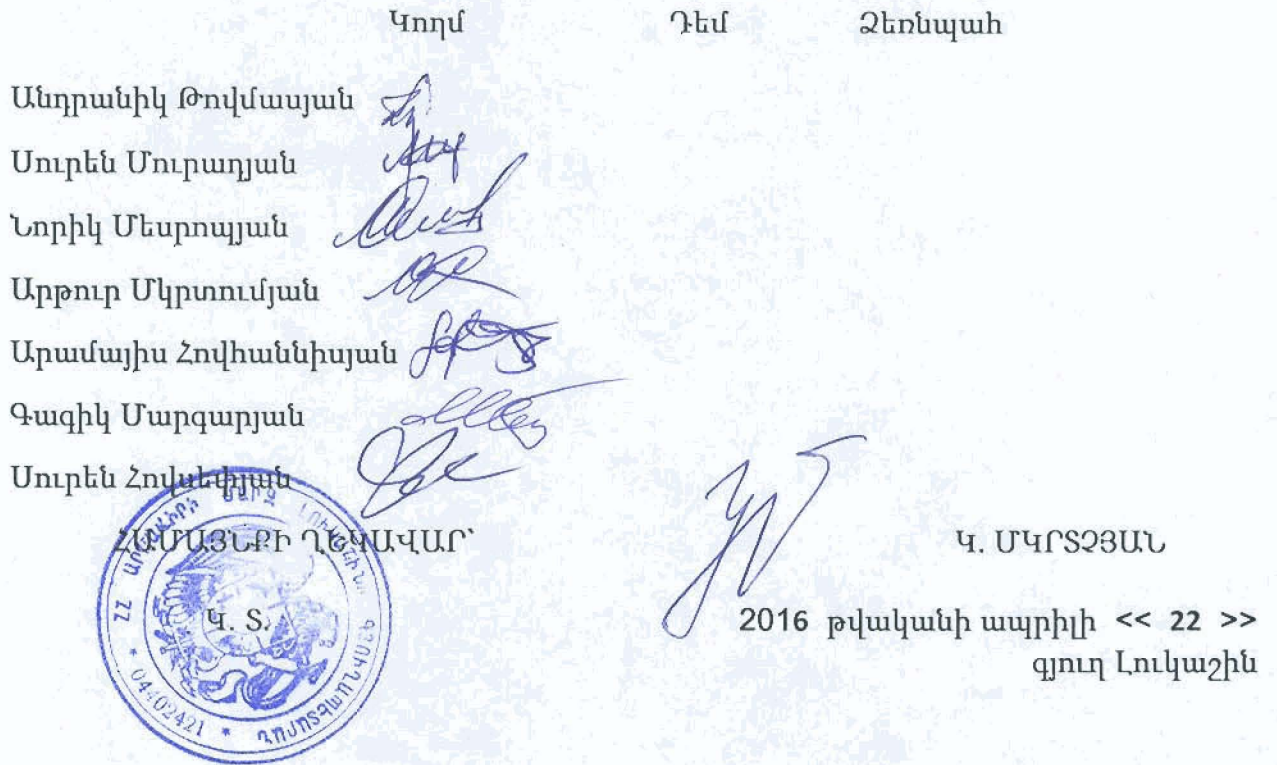 Կողմ Դեմ Ձեռնպահ
Անդրանիկ Թովմասյան
Սուրեն Մուրադյան
Նորիկ Մեսրոպյան
Արթուր Մկրտումյան
Արամայիս Հովհաննիսյան
Գագիկ Մարգարյան
Սուրեն Հովսեփյան
ՀԱՄԱՅՆՔԻ ՂԵԿԱՎԱՐ՝ Կ. ՄԿՐՏՉՅԱՆ
Կ. Տ.
2016 թվականի ապրիլի << 22 >>
գյուղ Լուկաշին
ՀՀ ԱՐՄԱՎԻՐԻ ՄԱՐԶ
* 04402421 *